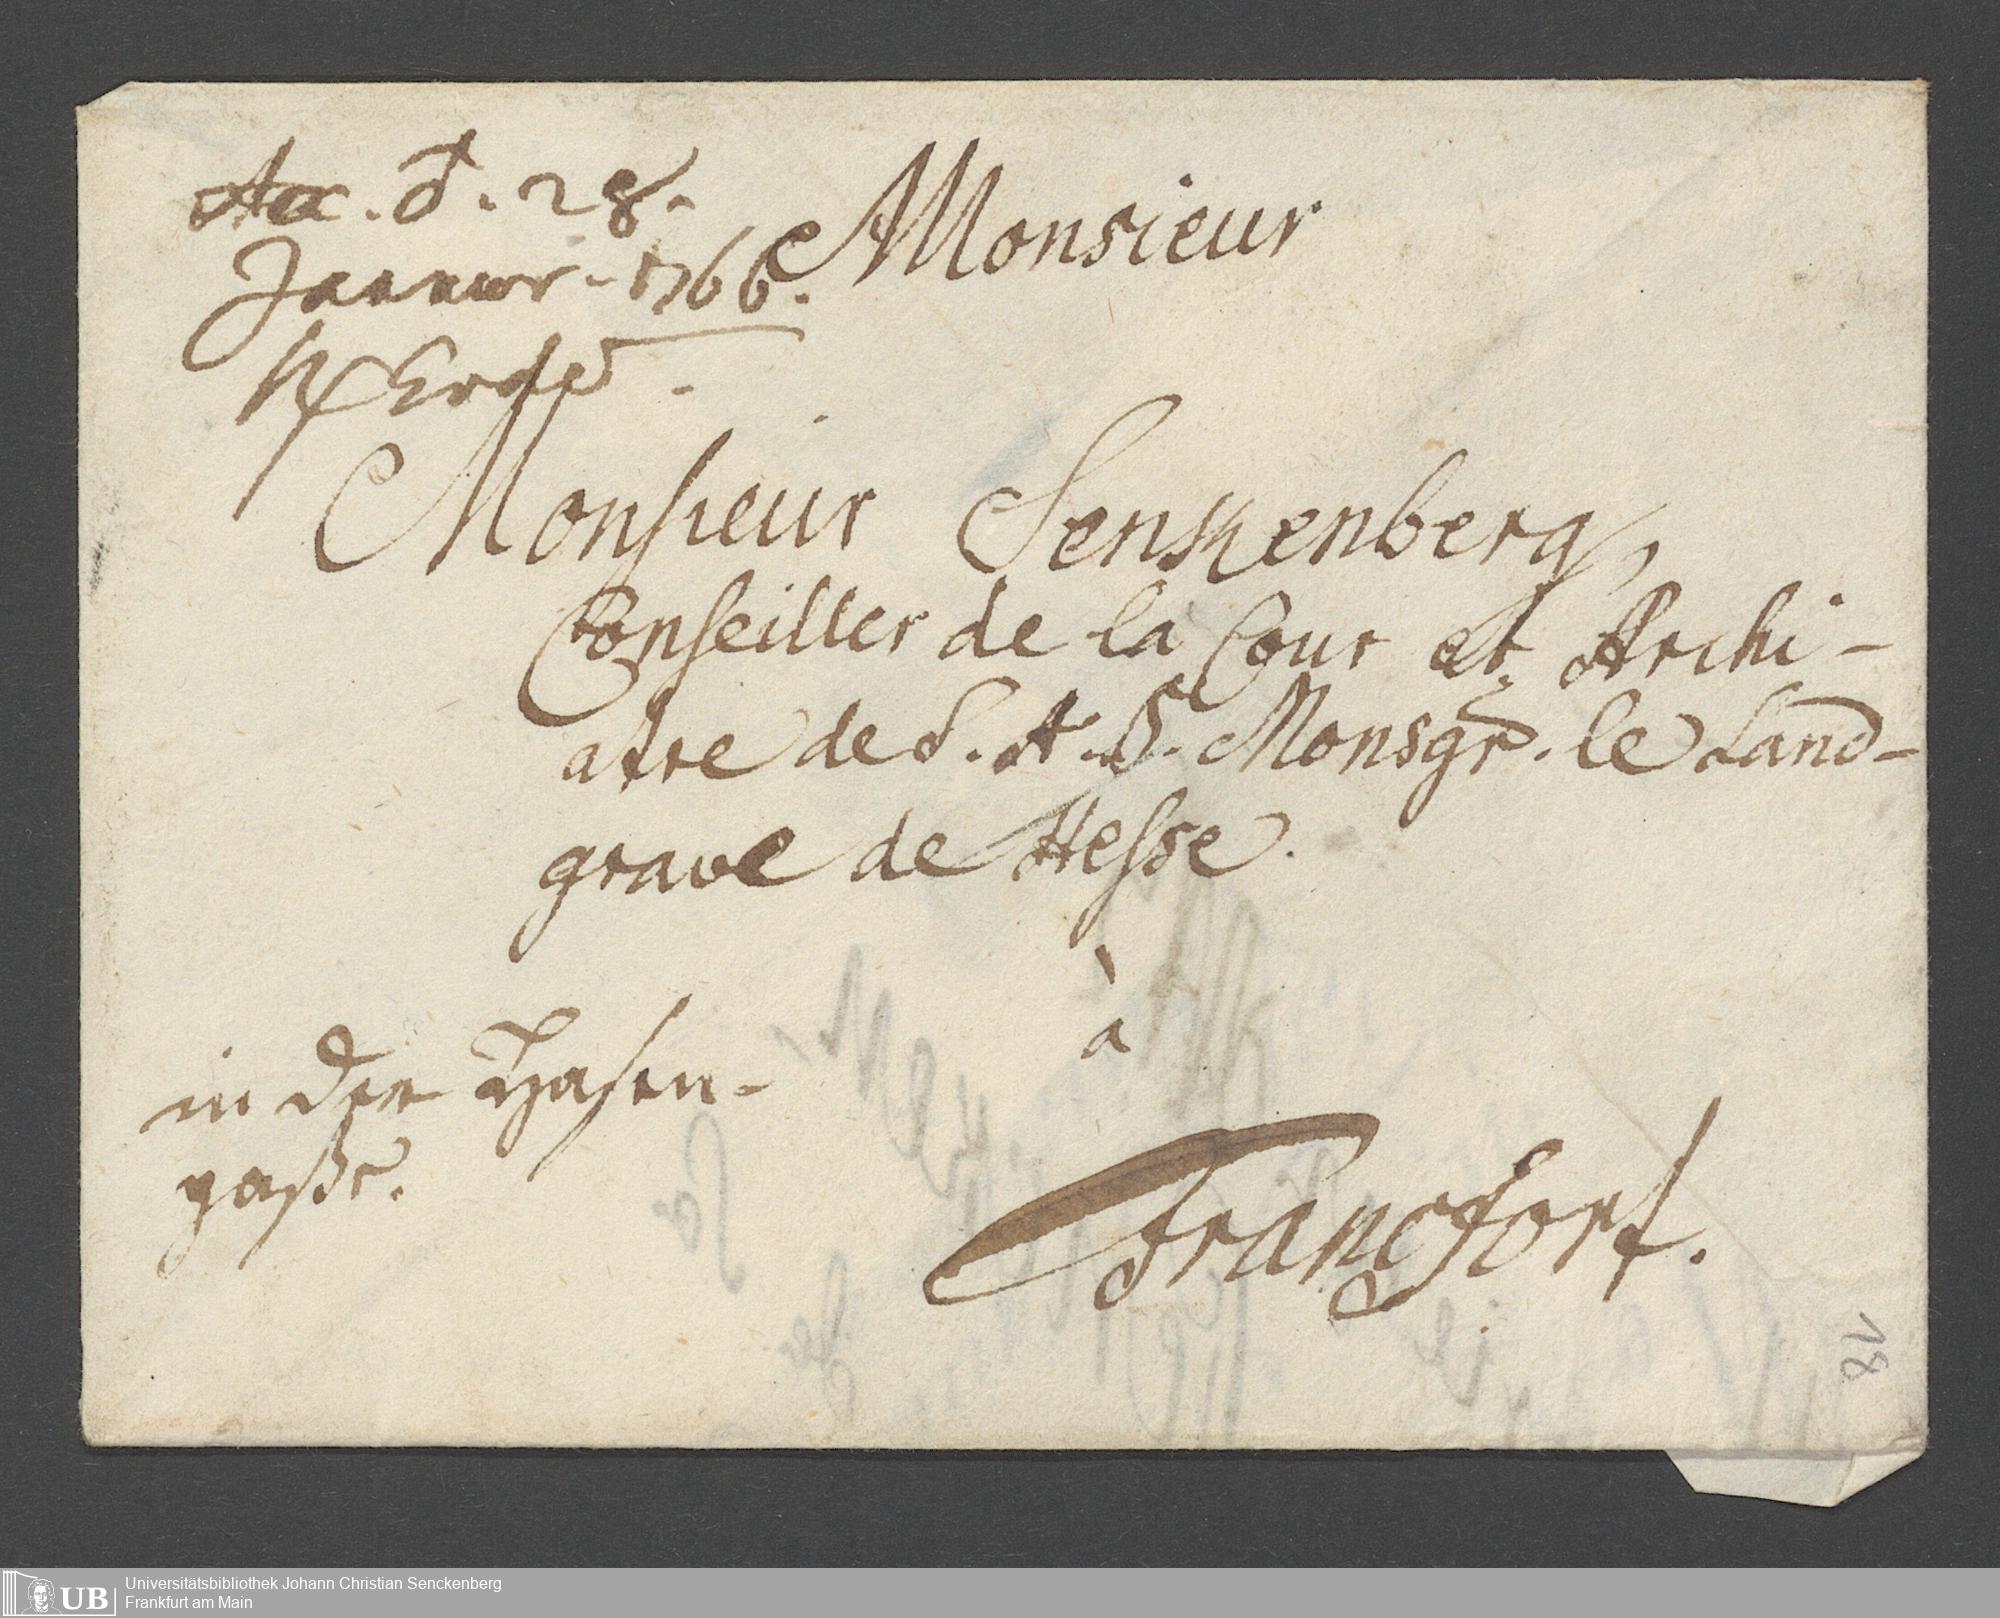 Acc. ♂. 28.
Januar. 1766.
Monsieur
Monsieur Senkenberg,
Conseiller de la Cour et Archi-
atre de S. A. S. Monsgr. le Land-
grave de Hesse.
à
in der Hasen-
gaße.
Francfort.
18
Universitätsbibliothek Johann Christian Senckenberg
UB
Frankfurt am Main